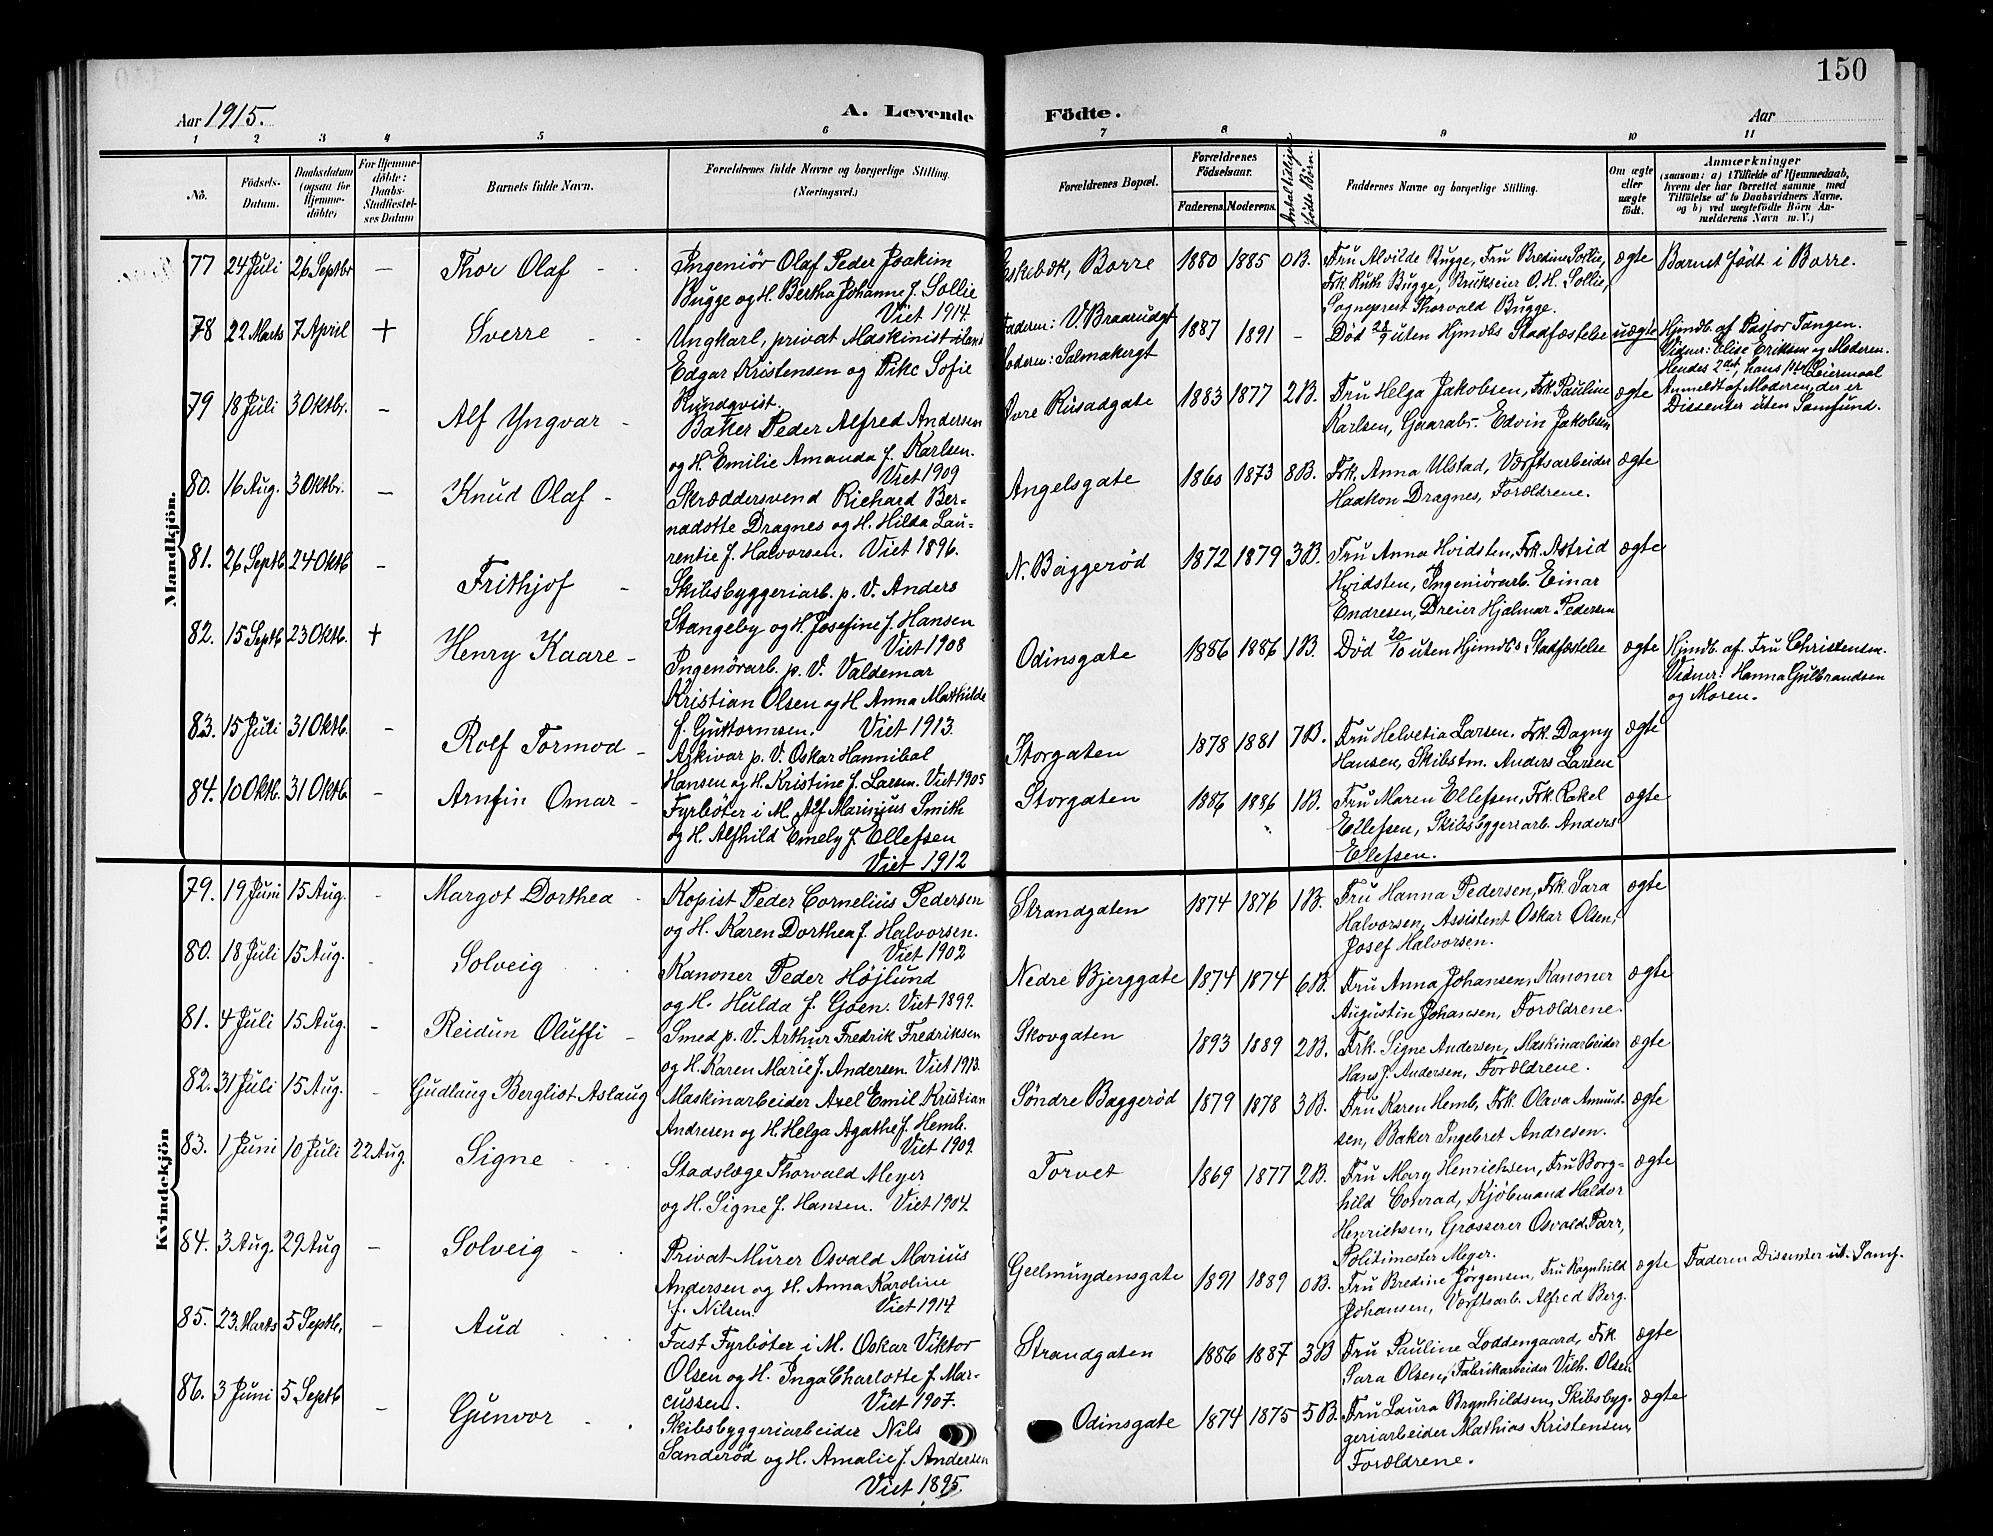 150
Aar 1915.
A. Levende Födte.
Aar
1 2 3 4 5 6 7 8 9 10 11
No.
Födsels-
Datum.
Daabsdatum
(ogsaa for
Hjemme-
döbte)
For Hjemme-
döbte:
Daabs-
Stadfæstel-
ses Datum
Barnets fulde Navn.
Forældrenes fulde Navne og borgerlige Stilling.
(Næringsvei.)
Forældrenes Bopæl.
Forældrenes
Födselsaar.
Faderens. Moderens.
Antal tidligere
födte Börn.
Faddernes Navne og borgerlige Stilling.
Om ægte
eller
uægte
födt.
Anmærkninger
(saasom: a) i Tilfælde af Hjemmedaab,
hvem der har forrettet samme, med
Tilföielse af to Daabsvidners Navne,
og b) ved uægtefödte Börn An-
melderens Navn m. V.)
Mandkjön.
77 24 Juli 26 Septbr – Thor Olaf
Ingeniör Olaf Peder Joakim
Bugge og H. Bertha Johanne f. Sollie
Viet 1914
Borre 1880 1885 0 B.
Fru Alvilde Bugge, Fru Bredine Sollie,
Frk. Ruth Bugge, Brukseier O. H. Sollie,
Sogneprest Thorvald Bugge.
ægte Barnet födt i Borre.
78 22 Marts 7 April + Sverre
Ungkarl, privat Maskinist
Edgar Kristensen og Pike Sofie
Rundqvist.
Faderen: V. Braarudgt
Moderen: Salmakergt
1887 1891 –
Död uten Hjmdbs Stadfæstelse uægte
Hjmdb. af Pastor Tangen.
Vidner: Elise Eriksen og Moderen.
Hendes 2det, hans 1ste Leiermaal
79 18 Juli 3 Oktbr. – Alf Yngvar
Baker Peder Alfred Andersen
og H. Emilie Amanda f. Karlsen.
Viet 1909
Övre Rusadgate 1883 1877 2 B.
Fru Helga Jakobsen, Frk. Pauline
Karlsen, Gaarabr. Edvin Jakobsen
ægte
Anmeldt af Moderen, der er
Dissenter uten Samfund.
80. 16 Aug. 3 Oktbr. – Knud Olaf
Skræddersvend Richard Ber-
nadotte Dragnes og H. Hilda Lau-
rentie f. Halvorsen. Viet 1896.
Angelsgate 1860 1873 8 B.
Frk. Anna Ulstad, Værftsarbeider
Haakon Dragnes, Forældrene.
ægte
81. 26 Septb. 24 Oktb – Frithjof
Skibsbyggeriarb. p. V. Anders
Stangeby og H. Josefine f. Hansen
Viet 1908
N. Baggeröd 1872 1879 3 B.
Fru Anna Hvidsten, Frk. Astrid
Hvidsten, Ingeniörarb. Einar
Endresen, Dreier Hjalmar Pedersen
ægte
82. 15 Septb 23 Oktb. + Henry Kaare
Ingenörarb. p. V. Valdemar
Kristian Olsen og H. Anna Mathilde
f. Guttormsen. Viet 1913.
Odinsgate 1886 1886 1 B.
Död uten Hjmdbs. Stadfæstelse
ægte
Hjmdb. af Fru Christensen.
Vidner: Hanna Gulbrandsen
og Moren.
83. 15 Juli 31 Oktb. – Rolf Tormod
Arkivar p. V. Oskar Hannibal
Hansen og H. Kristine f. Larsen. Viet 1905
Storgaten 1878 1881 7 B.
Fru Helvetia Larsen, Frk. Dagny
Hansen, Skibstm. Anders Larsen
ægte
84. 10 Oktb. 31 Oktb – Arnfin Omar
Fyrböter i M. Alf Marinius Smith
og H. Alfhild Emely f. Ellefsen
Viet 1912
Storgaten 1886 1886 1 B.
Fru Maren Ellefsen, Frk. Rakel
Ellefsen, Skibsbyggeriarb. Anders
Elefsen.
ægte
Kvindekjön
79. 19 Juni 15 Aug. – Margot Dorthea
Kopist Peder Cornelius Pedersen
og H. Karen Dorthea f. Halvorsen.
Viet 1902
Strandgaten 1874 1876 1 B.
Fru Hanna Pedersen, Frk. Sara
Halvorsen, Assistent Oskar Olsen,
Josef Halvorsen.
ægte
80. 18 Juli 15 Aug. – Solveig
Kanoner Peder Höjlund
og H. Hulda f. Goen. Viet 1899.
Nedre Bjerggate 1874 1874 6 B.
Fru Anna Johansen, Kanoner
Augustin Johansen, Forældrene.
ægte
81. 4 Juli 15 Aug. – Reidun Oluffi
Smed p. V. Arthur Fredrik Fredriksen
og H. Karen Marie f. Andersen. Viet 1913.
Skovgaten 1893 1889 2 B.
Frk. Signe Andersen, Maskinarbeider
Hans J. Andersen, Forældrene.
ægte
82. 31 Juli 15 Aug. – Gudlaug Bergliot Aslaug
Maskinarbeider Axel Emil Kristian
Andresen og H. Helga Agathe f. Hemb.
Viet 1909.
Söndre Baggeröd 1879 1878 3 B.
Fru Karen Hemb, Frk. Olava Amund-
sen, Baker Ingebret Andresen.
ægte
83. 1 Juni 10 Juli 22 Aug. Signe
Stadslæge Thorvald Meyer
og H. Signe f. Hansen. Viet 1904.
Torvet 1869 1877 2 B.
Fru Mary Henrichsen, Fru Borg-
hild Conrad, Kjöbmand Haldor
Henrichsen, Grosserer Osvald Parr,
Politimester Meyer.
ægte
84. 3 Aug. 29 Aug – Solveig
Privat Murer Osvald Marius
Andersen og H. Anna Karoline
f. Nilsen. Viet 1914
Geelmuydensgate 1891 1889 0 B.
Fru Bredine Jörgensen, Fru Ragnhild
Johansen, Værftsarb. Alfred Berg.
ægte Faderen Dissenter ut. Samf.
85. 23. Marts 5 Septb. – Aud
Fast Fyrböter i M. Oskar Viktor
Olsen og H. Inga Charlotte f. Mar-
cussen. Viet 1907.
Strandgaten 1886 1887 3 B
Fru Pauline Loddengaard, Frk.
Sara Olsen, Fabrikarbeider Vilh. Olsen
ægte
86. 3 Juni 5 Septb – Gunvor
Skibsbyggeriarbeider Nils
Sanderöd og H. Amalie f. Andersen
Viet 1895.
Odinsgate 1874 1875 5 B.
Fru Laura Brynhildsen, Skibsbyg-
geriarbeider Mathias Kristensen,
Forældrene.
ægte